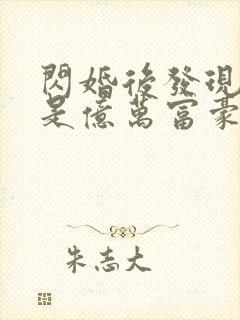 閃婚後發現
是億萬富豪
朱志大